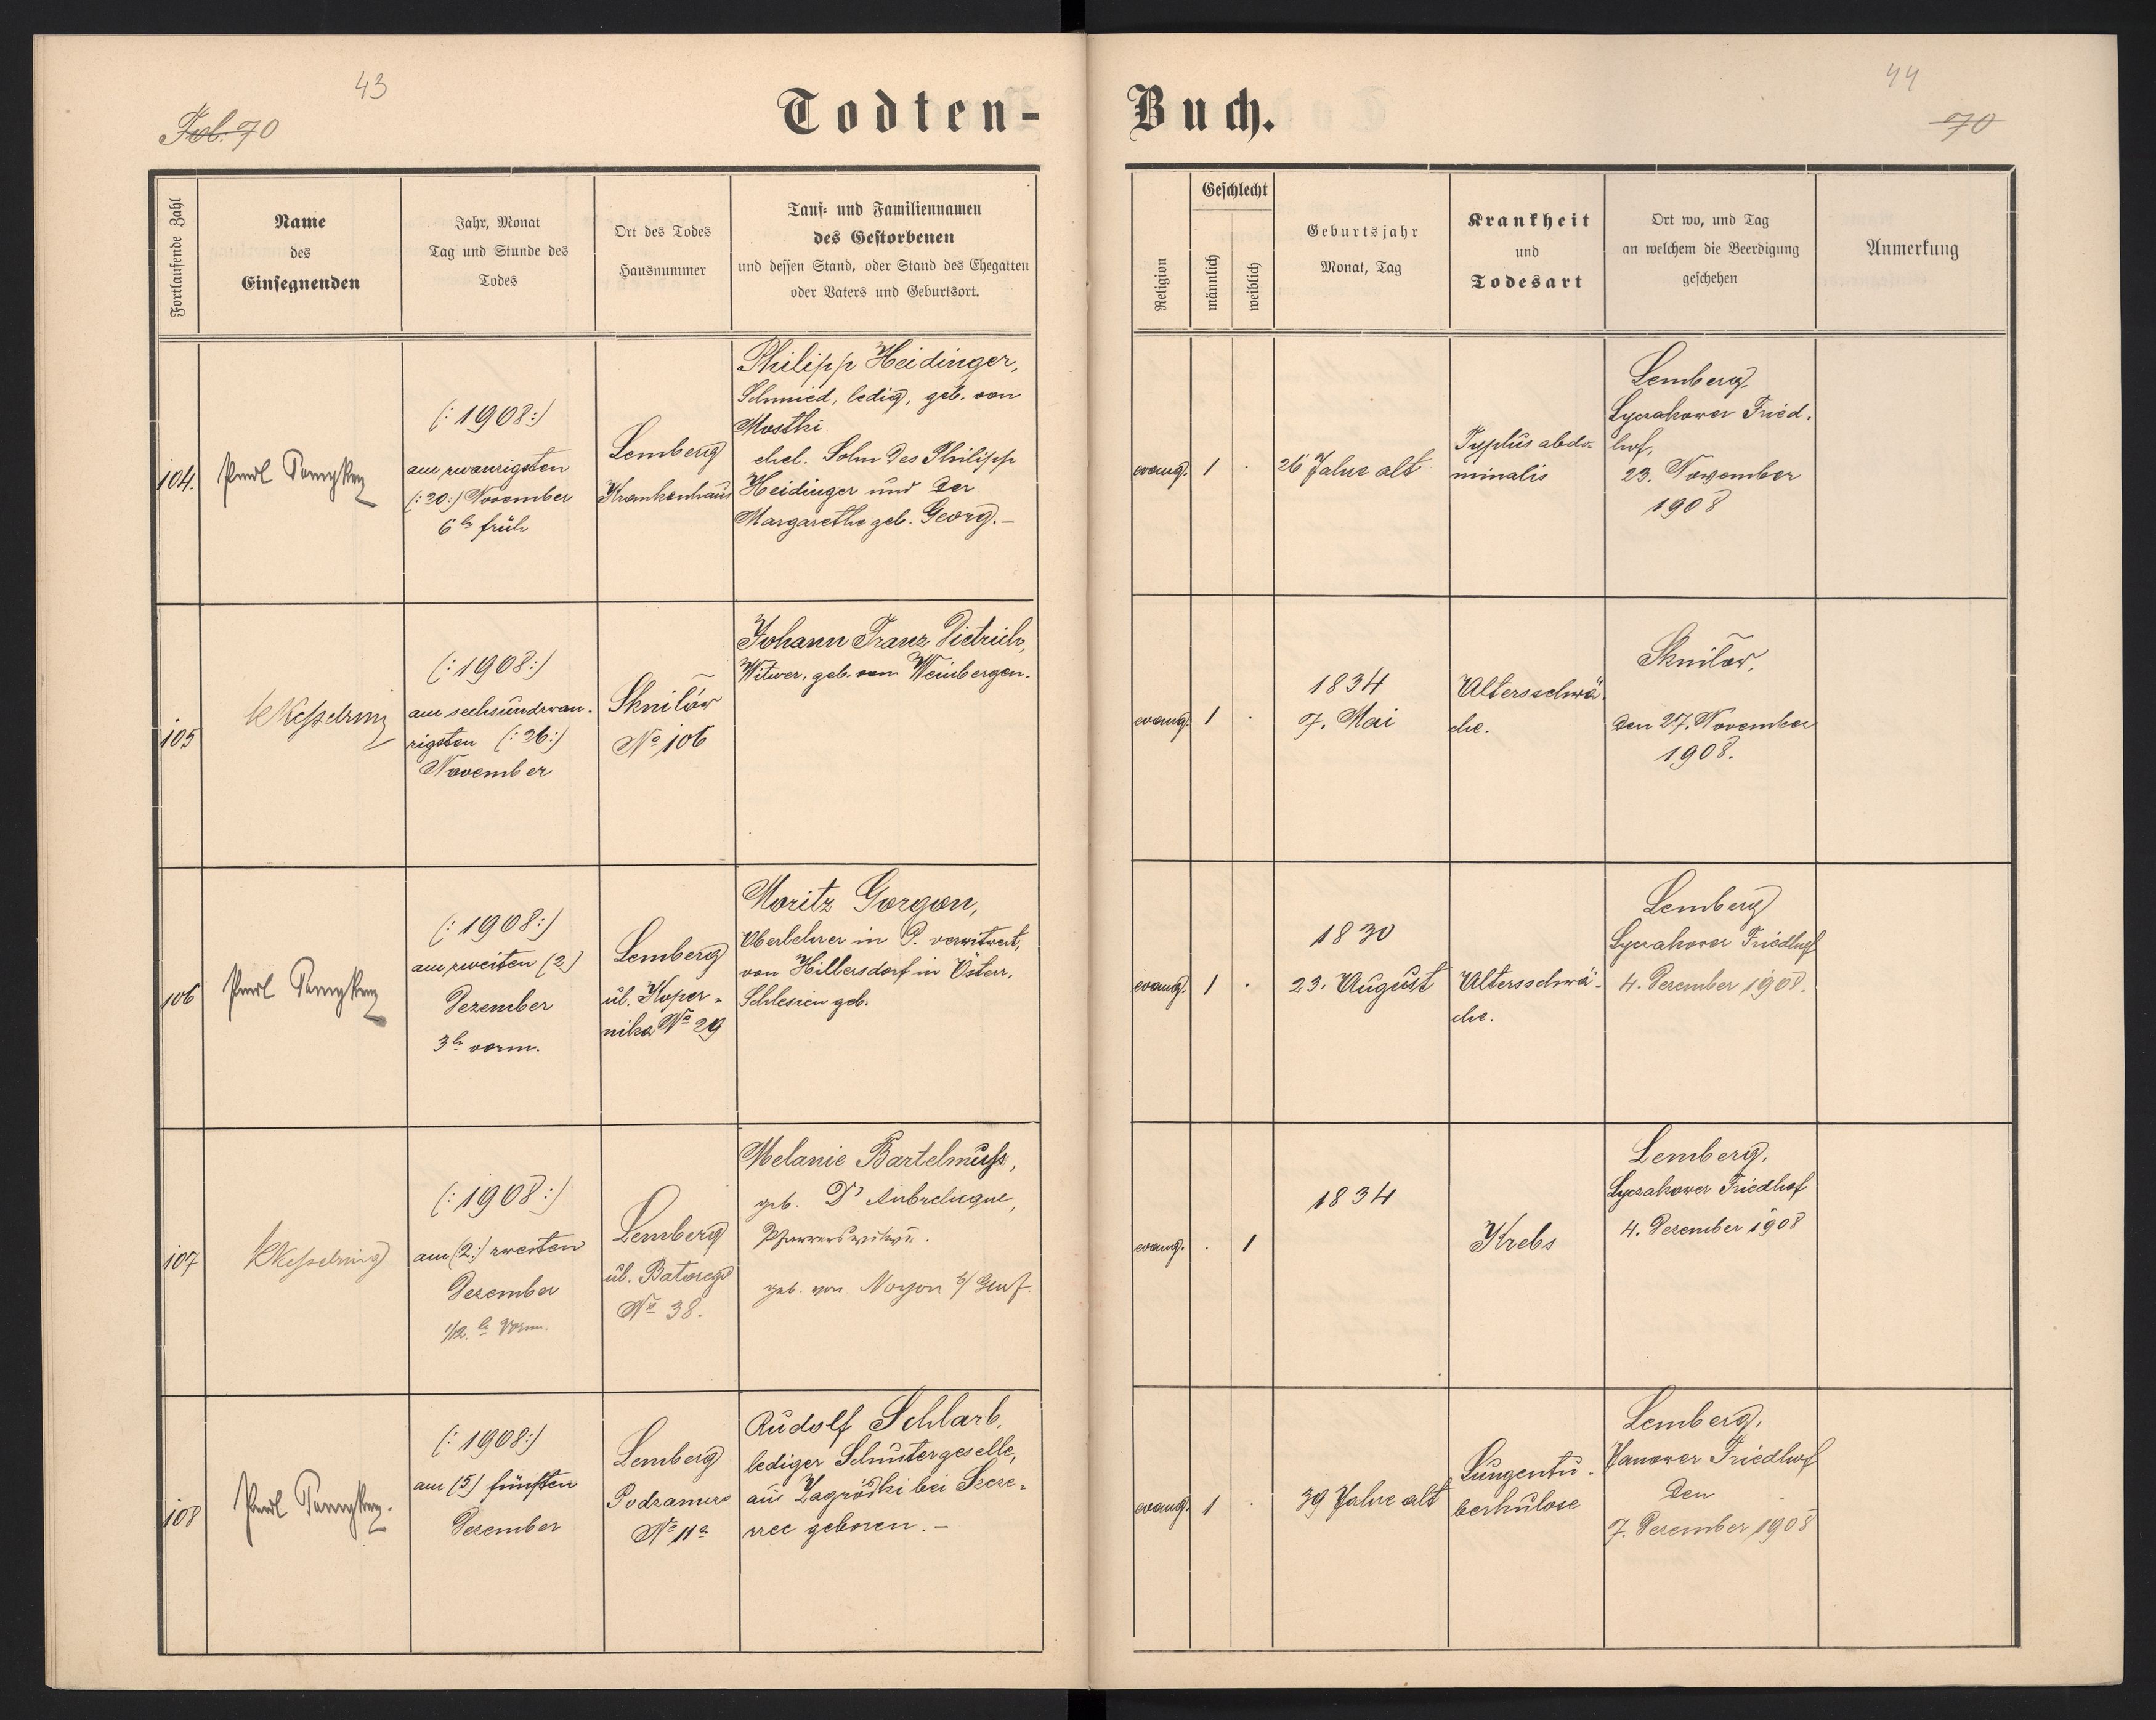 43
Fol. 70
Todten-
Fortlaufende Zahl
Name
des
Einsegnenden
Jahr, Monat
Tag und Stunde des
Todes
Ort des Todes
Hausnummer
Tauf- und Familiennamen
des Gestorbenen
und dessen Stand, oder Stand des Ehegatten
oder Vaters und Geburtsort.
104.
(: 1908:)
am zwanzigsten
(: 20:) November
6 h früh
Lemberg
Krankenhaus
Philipp Heidinger,
Schmied, ledig, geb. von
Mosthi.
ehel. Sohn des Philipp
Heidinger und der
Margarethe geb. Georg. —
105
Kesselring
(: 1908:)
am sechsundzwan-
zigsten (: 26:)
November
Sknilów
No 106
Johann Franz Dietrich,
Witwer, geb. von Weinbergen.
106
(: 1908:)
am zweiten (2)
Dezember
3 h vorm.
Lemberg
ul. Koper-
nika No 29
Moritz Gorgon,
Oberlehrer in P. verwitwert,
von Hillersdorf in Österr.
Schlesien geb.
107
Kesselring
(: 1908:)
am (2:) zweiten
Dezember
1/12 h Vorm.
Lemberg
ul. Batorego
No 38.
Melanie Bartelmuss,
geb. D'Aubrelique,
Pfarrerswitwe.
geb. von Noyon b/ Genf.
108
(: 1908:)
am (5) fünften
Dezember
Lemberg
Podzamcze
No 11a
Rudolf Schlarb,
lediger Schustergeselle,
aus Zagródki bei Szcze-
rzec geboren. —
44
70
Buch.
Religion
Geschlecht
männlich
weiblich
Geburtsjahr
Monat, Tag
Krankheit
und
Todesart
Ort wo, und Tag
an welchem die Beerdigung
geschehen
Anmerkung
evang. 1 .
26 Jahre alt
Typhus abdo-
minalis
Lemberg,
Lyczakower Fried-
hof,
23. November
1908
evang. 1 .
1834
7. Mai
Altersschwä-
che.
Sknilów,
den 27. November
1908.
evang. 1 .
1830
23. August
Altersschwä-
che.
Lemberg
Lyczakower Friedhof
4. Dezember 1908.
evang. . 1
1834
Krebs
Lemberg,
Lyczakower Friedhof
4. Dezember 1908
evang. 1 .
39 Jahre alt
Lungentu-
berkulose
Lemberg,
Janower Friedhof
den
7. Dezember 1908